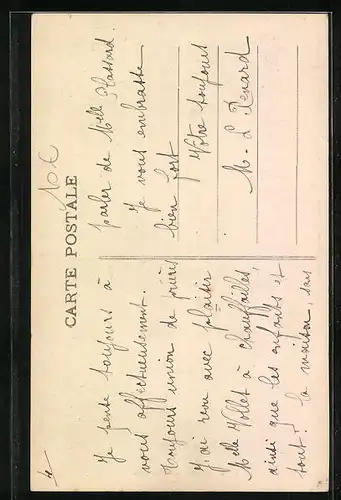 10€
CARTE POSTALE
Je pense toujours à
vous affectueusement.
Toujours union de prières
J'ai revu avec plaisir
Melle Mollet à Chauffailles,
ainsi que les enfants et
tout la maison, sans
parler de Melle Massard.
Je vous embrasse
bien fort
Votre toujours
M. L Renard